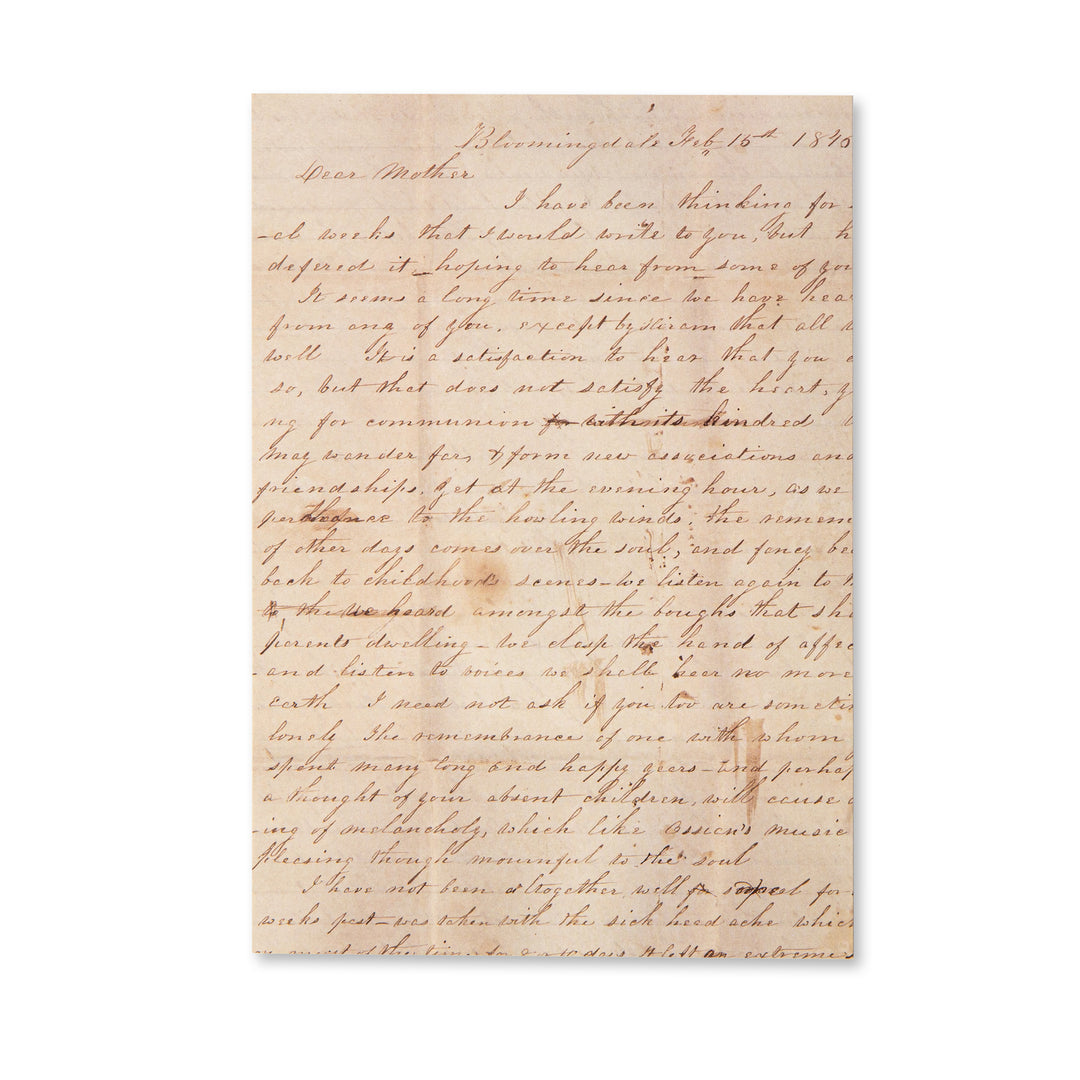 Bloomingdale Feb 15th 184
Dear Mother
I have been thinking for
-al weeks that I would write to you, but h
defered it - hoping to hear from some of you
It seems a long time since we have hear
from any of you, except by Hiram that all
well It is a satisfaction to hear that you
so, but that does not satisfy the heart, y
ng for communion for with its kindred
may wander far, & form new associations and
friendships, yet at the evening hour, as we
to the howling winds, the remem
of other days comes over the soul, and fancy be
back to childhoods scenes - we listen again to
to the we heard amongst the boughs that sh
parents dwelling - we clasp the hand of affec
- and listen to voices we shall hear no more
earth I need not ask if you too are sometim
lonely The remembrance of one with whom
spent many long and happy years - and perhap
a thought of your absent children, will cause
-ing of melancholy, which like Ossian's music
pleasing though mournful to the soul
I have not been altogether well for for
weeks past - was taken with the sick head ache which
most of the time for or days It left an extreme